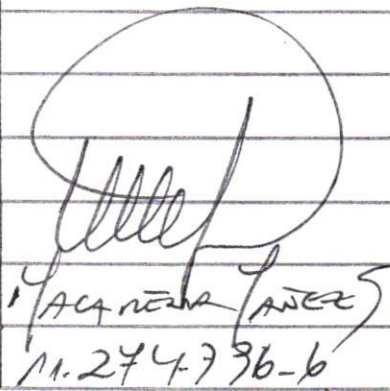 Macarena Yañez S
11.274.736-6